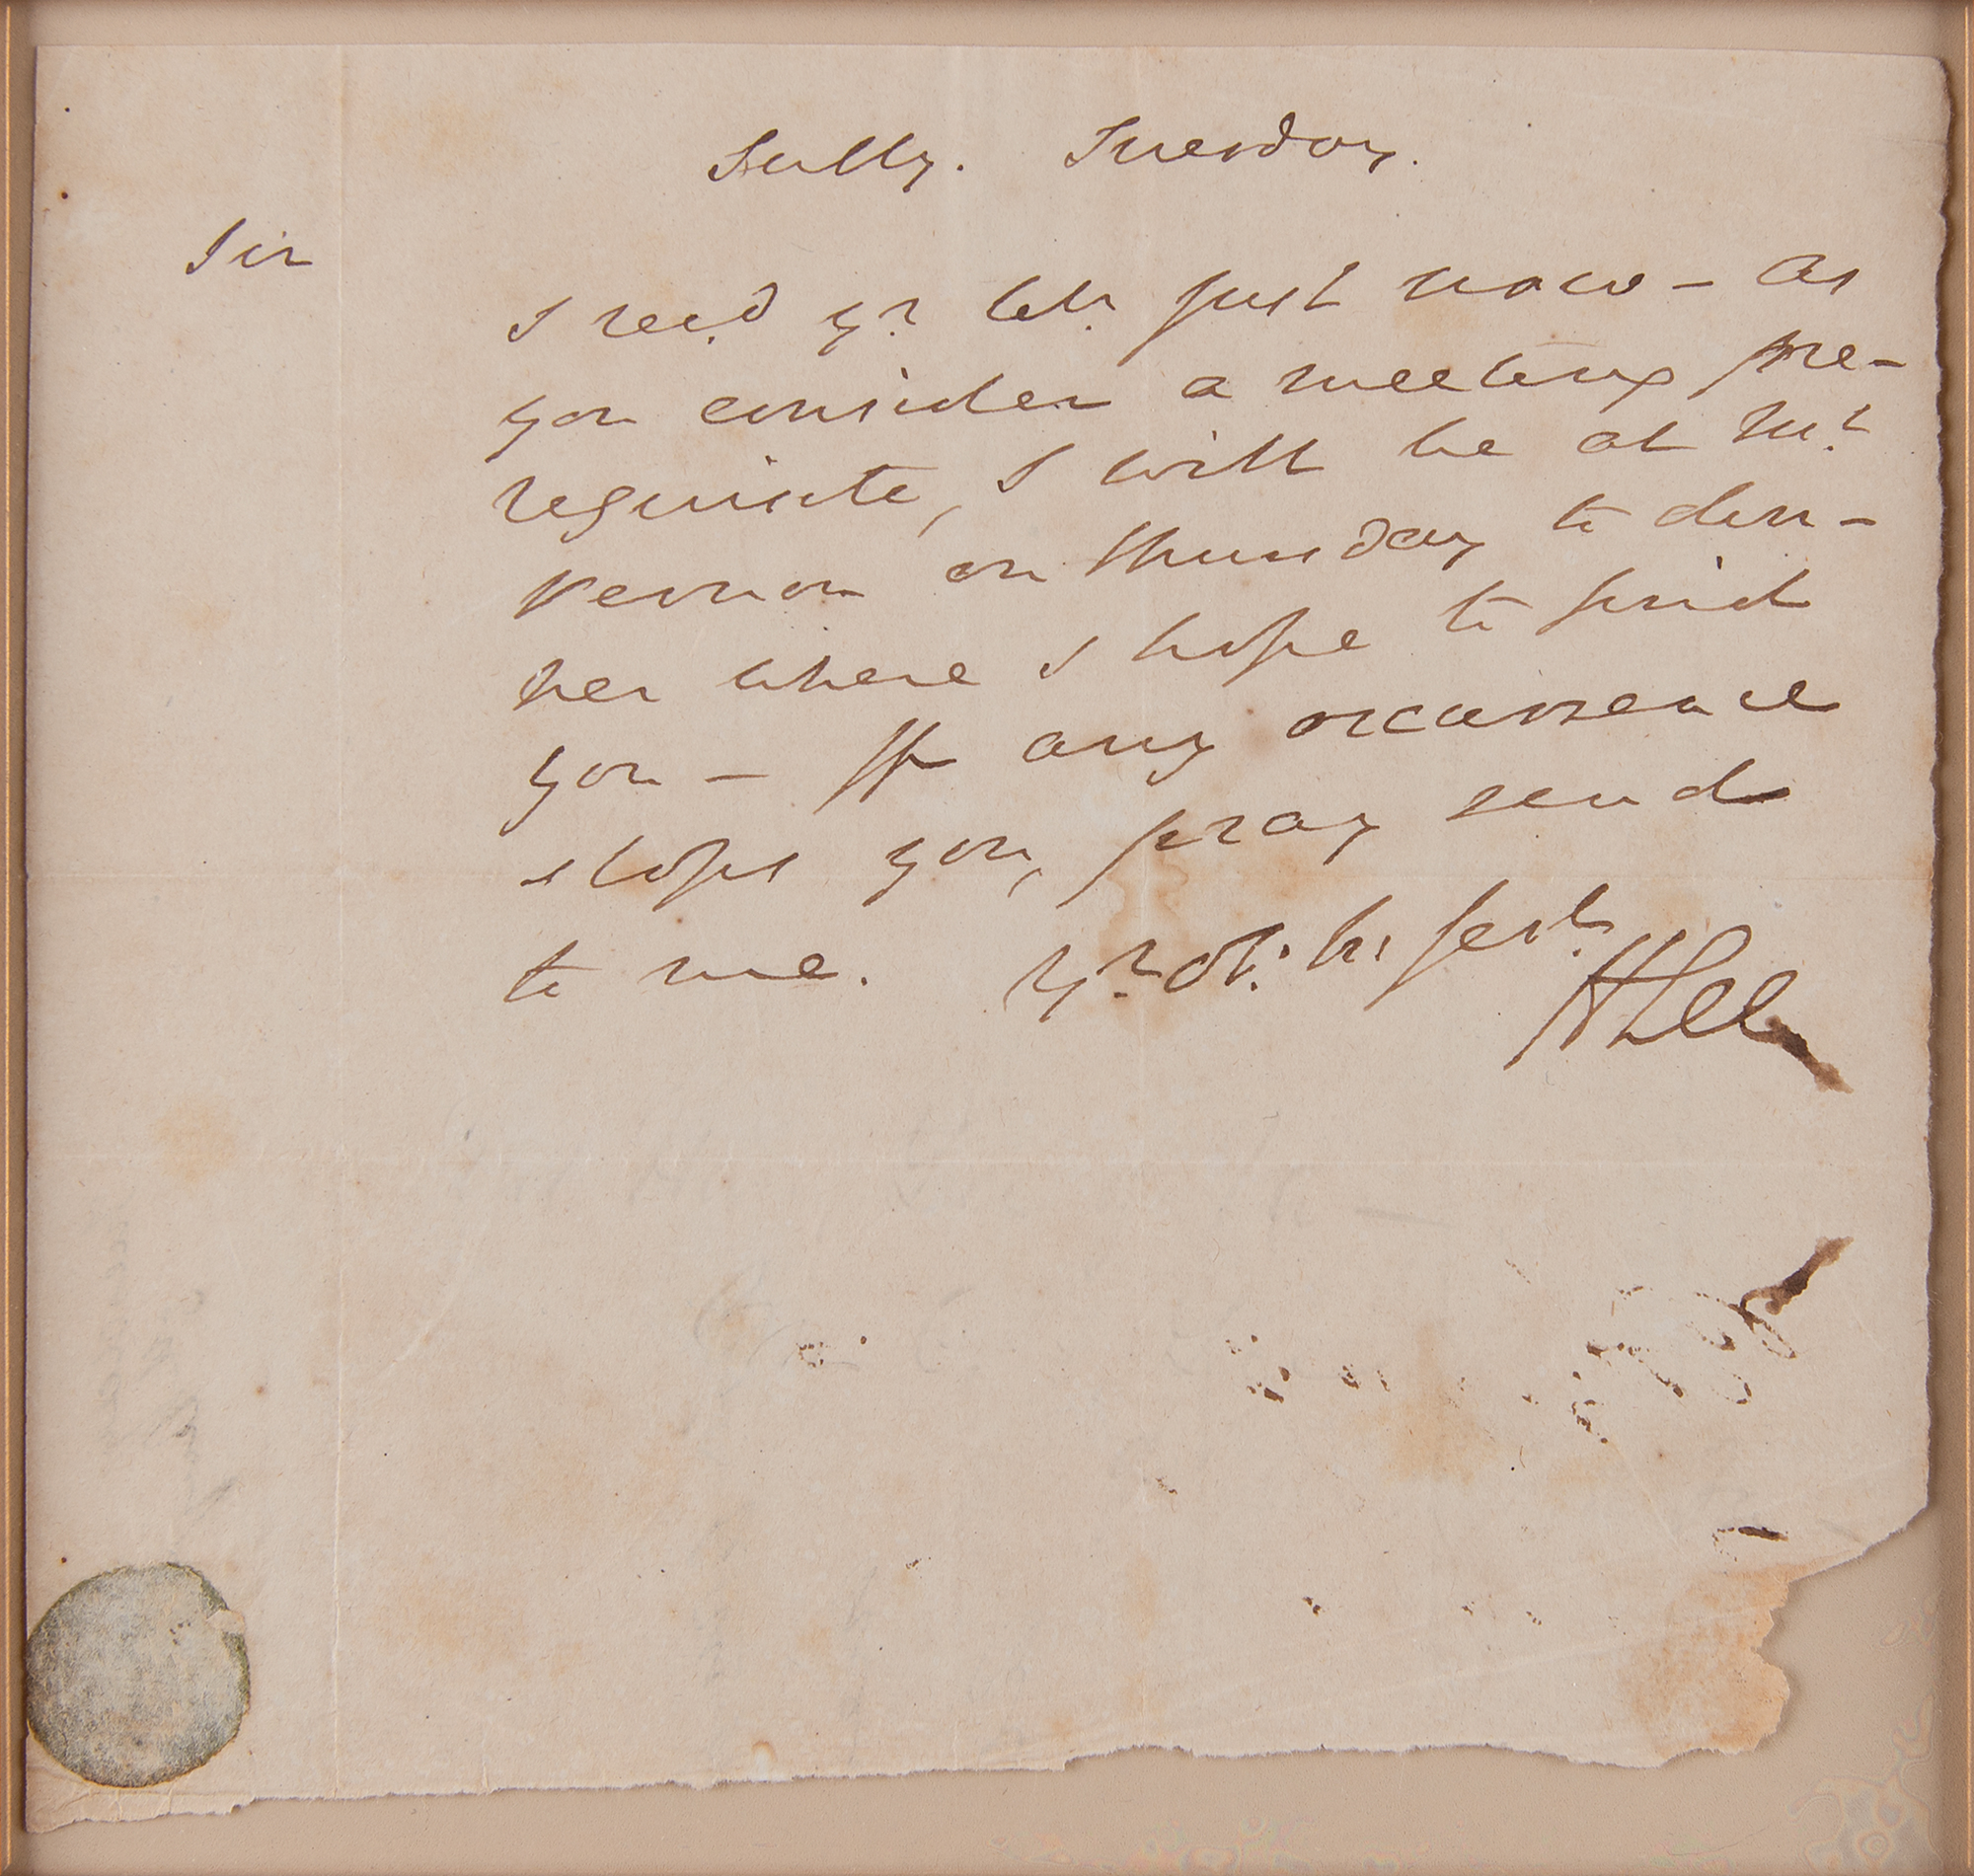 Sully. Tuesday.
Sir
I recd. yr. letr. just now – As
you consider a meeting pre-
requisite, I will be at Mt.
Vernon on thursday to din-
ner where I hope to find
you – If any occurrence
stops you, pray send
to me. Yr. ob: h: servt.
HLee